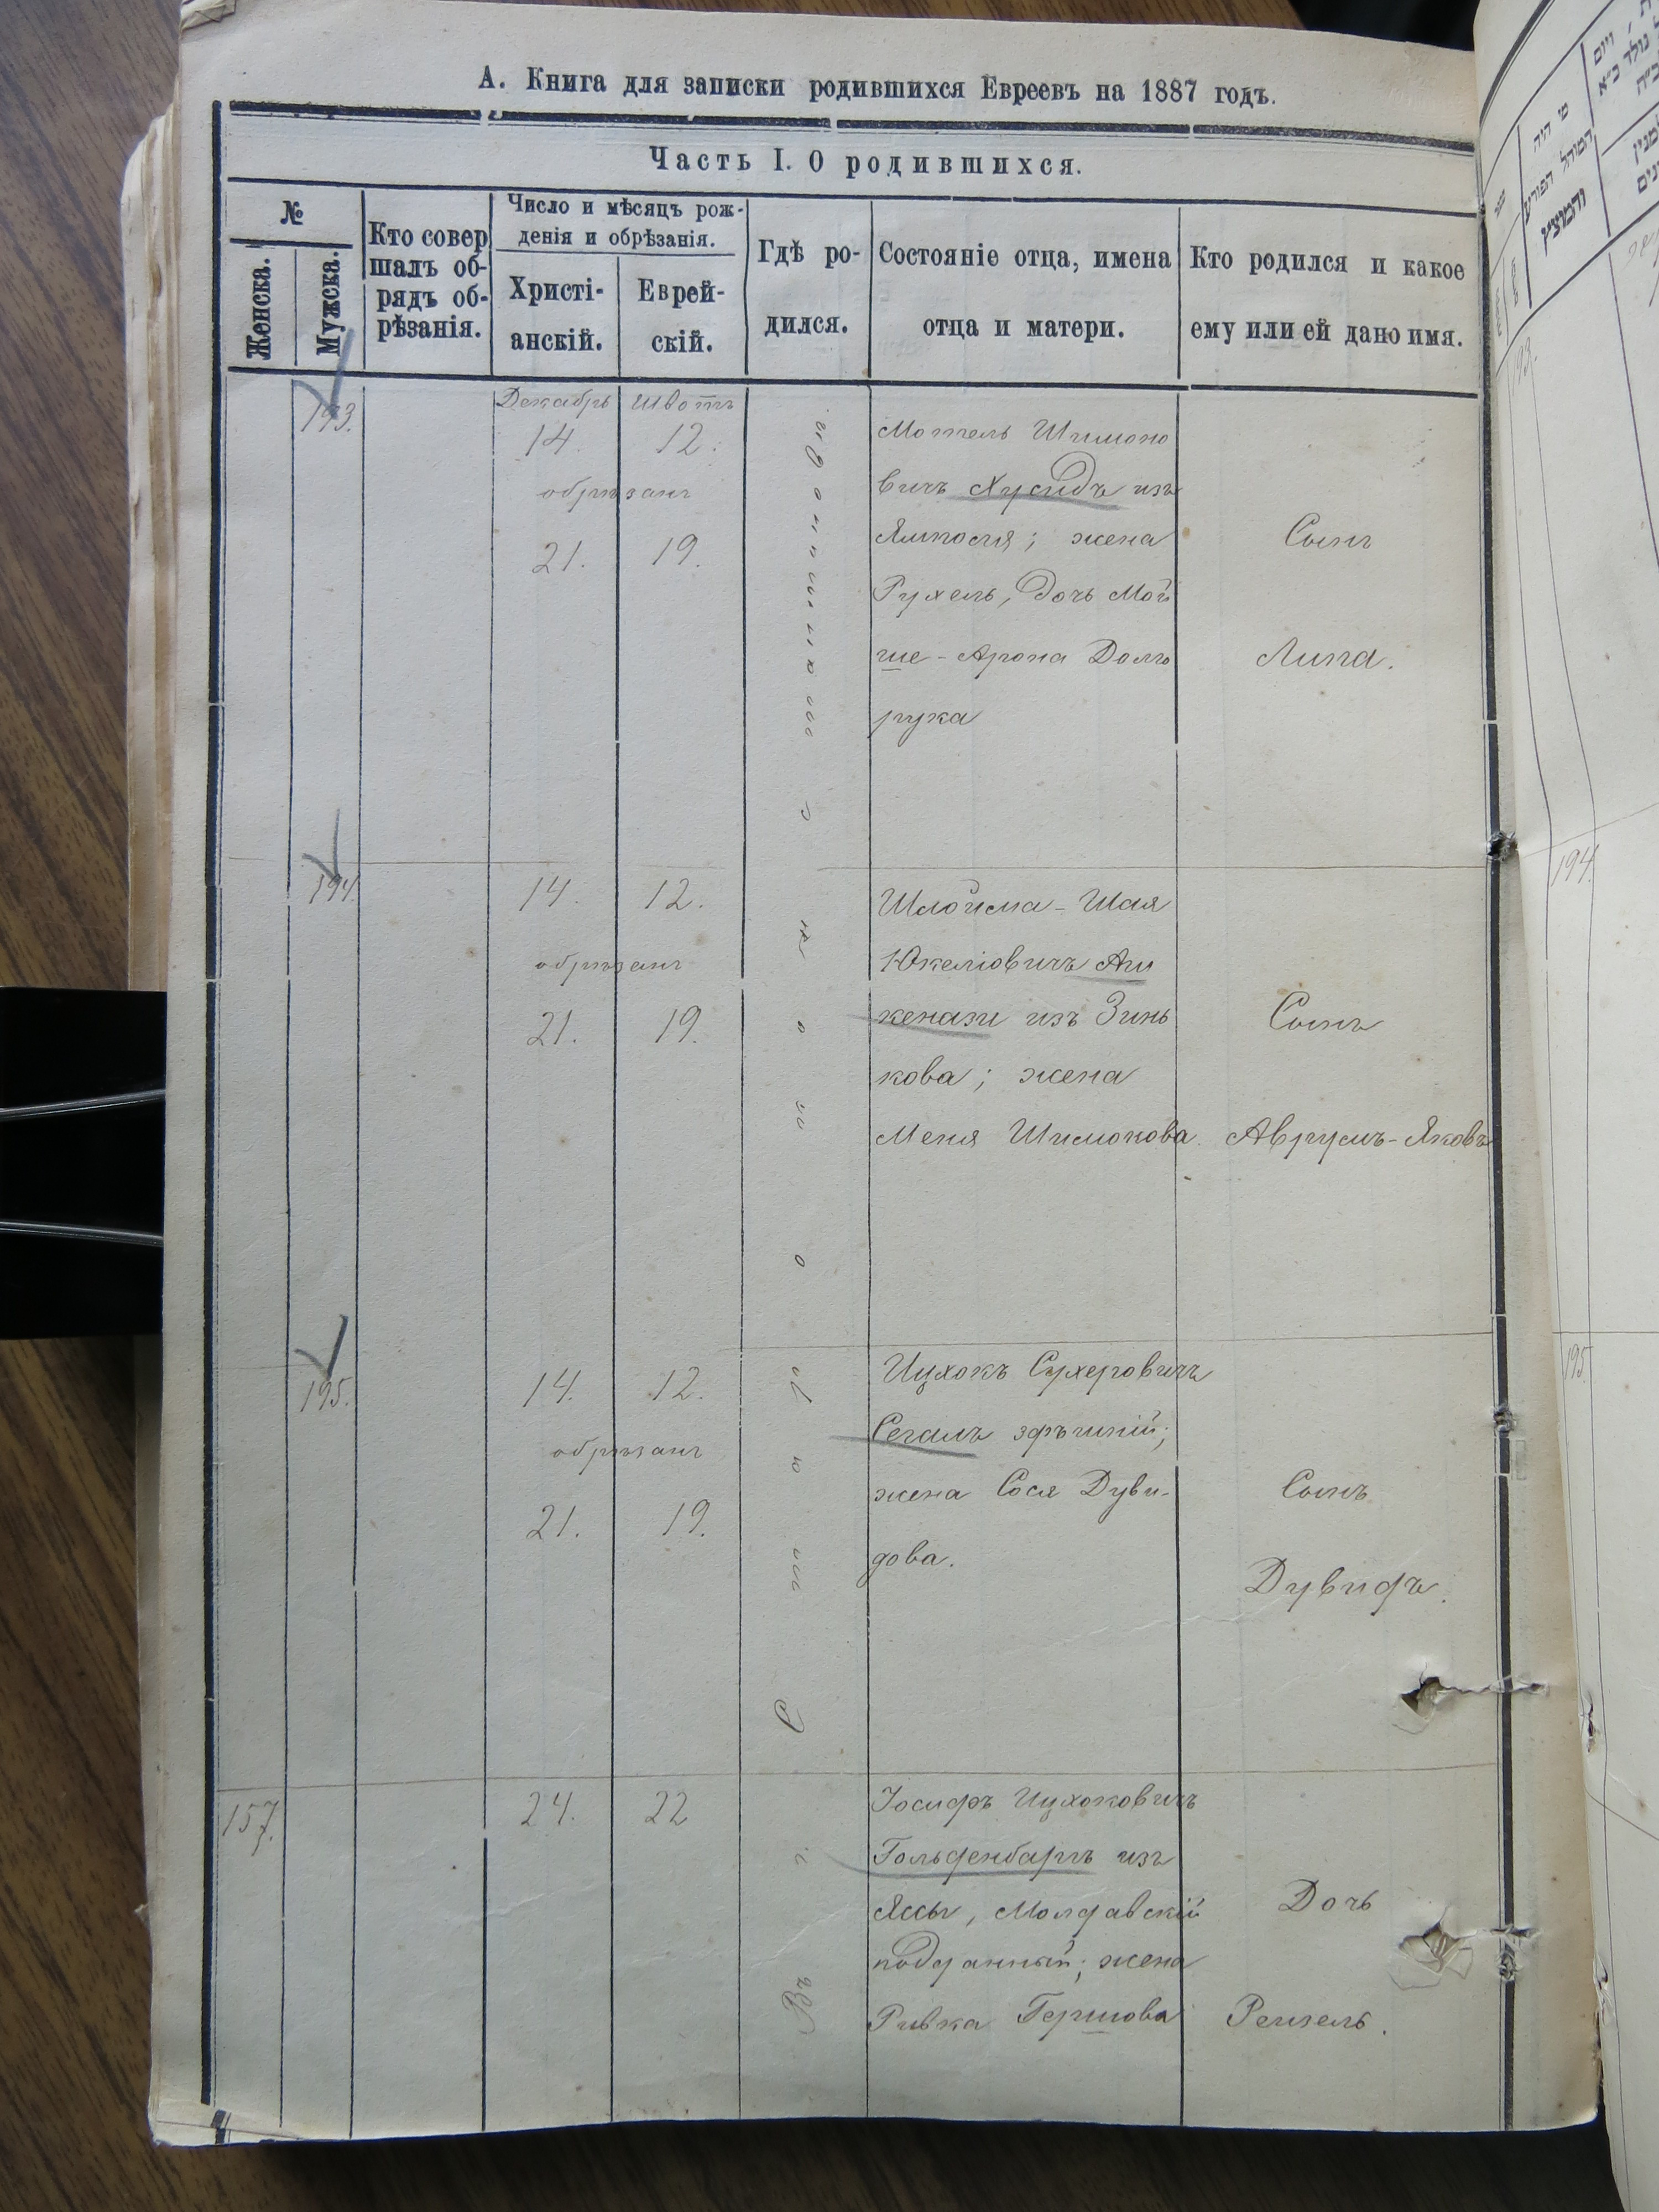 А. Книга для записки родившихся Евреевъ на 1887 годъ.
Часть I. О родившихся.
№
Женска.
Мужска.
Кто совер
шалъ об-
рядъ об-
рѣзанія.
Число и мѣсяцъ рож-
денія и обрѣзанія.
Христі-
анскій.
Еврей-
скій.
Гдѣ ро-
дился.
Состояніе отца, имена
отца и матери.
Кто родился и какое
ему или ей дано имя.
193.
Декабрь Швотъ
14. 12.
обрѣзанъ
21. 19.
Мотель Шимоно
вичъ Хусидъ изъ
Ямполя; жена
Рухель, дочь Мой
ше-Арона Долго
рука
Сынъ
Липа.
194.
14. 12.
обрѣзанъ
21. 19.
Шлойма-Шая
Юкеліовичъ Аш
кенази изъ Зинь
кова; жена
Меня Шимонова.
Сынъ
Аврумъ-Яковъ
195.
14. 12.
обрѣзанъ
21. 19.
Ицхокъ Сухеровичъ
Сегалъ здѣшній;
жена Сося Дуви-
дова.
Сынъ
Дувидъ.
157.
24. 22
Іосифъ Ицхоковичъ
Гольденбаргъ изъ
Яссы, Молдавскій
подданный; жена
Ривка Гершова
Дочь
Рейзель.
Въ
194.
195.